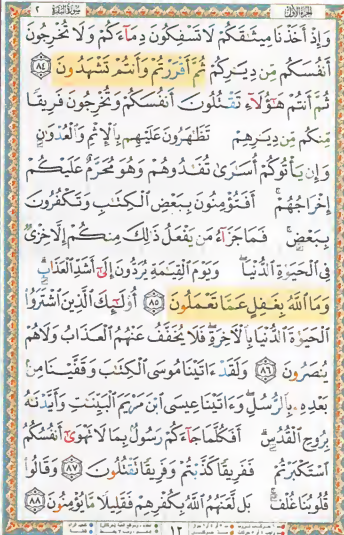 الجزء الأول سورة البقرة ٢
وَإِذْ أَخَذْنَا مِيثَٰقَكُمْ لَا تَسْفِكُونَ دِمَآءَكُمْ وَلَا تُخْرِجُونَ
أَنفُسَكُم مِّن دِيَٰرِكُمْ ثُمَّ أَقْرَرْتُمْ وَأَنتُمْ تَشْهَدُونَ ٨٤
ثُمَّ أَنتُمْ هَٰٓؤُلَآءِ تَقْتُلُونَ أَنفُسَكُمْ وَتُخْرِجُونَ فَرِيقًا
مِّنكُم مِّن دِيَٰرِهِمْ تَظَٰهَرُونَ عَلَيْهِم بِٱلْإِثْمِ وَٱلْعُدْوَٰنِ
وَإِن يَأْتُوكُمْ أُسَٰرَىٰ تُفَٰدُوهُمْ وَهُوَ مُحَرَّمٌ عَلَيْكُمْ
إِخْرَاجُهُمْ ۚ أَفَتُؤْمِنُونَ بِبَعْضِ ٱلْكِتَٰبِ وَتَكْفُرُونَ
بِبَعْضٍ ۚ فَمَا جَزَآءُ مَن يَفْعَلُ ذَٰلِكَ مِنكُمْ إِلَّا خِزْىٌ
فِى ٱلْحَيَوٰةِ ٱلدُّنْيَا ۖ وَيَوْمَ ٱلْقِيَٰمَةِ يُرَدُّونَ إِلَىٰٓ أَشَدِّ ٱلْعَذَابِ ۗ
وَمَا ٱللَّهُ بِغَٰفِلٍ عَمَّا تَعْمَلُونَ ٨٥ أُو۟لَٰٓئِكَ ٱلَّذِينَ ٱشْتَرَوُا۟
ٱلْحَيَوٰةَ ٱلدُّنْيَا بِٱلْءَاخِرَةِ ۖ فَلَا يُخَفَّفُ عَنْهُمُ ٱلْعَذَابُ وَلَا هُمْ
يُنصَرُونَ ٨٦ وَلَقَدْ ءَاتَيْنَا مُوسَى ٱلْكِتَٰبَ وَقَفَّيْنَا مِنۢ
بَعْدِهِۦ بِٱلرُّسُلِ ۖ وَءَاتَيْنَا عِيسَى ٱبْنَ مَرْيَمَ ٱلْبَيِّنَٰتِ وَأَيَّدْنَٰهُ
بِرُوحِ ٱلْقُدُسِ ۗ أَفَكُلَّمَا جَآءَكُمْ رَسُولٌۢ بِمَا لَا تَهْوَىٰٓ أَنفُسُكُمُ
ٱسْتَكْبَرْتُمْ فَفَرِيقًا كَذَّبْتُمْ وَفَرِيقًا تَقْتُلُونَ ٨٧ وَقَالُوا۟
قُلُوبُنَا غُلْفٌۢ ۚ بَل لَّعَنَهُمُ ٱللَّهُ بِكُفْرِهِمْ فَقَلِيلًا مَّا يُؤْمِنُونَ ٨٨
١٣